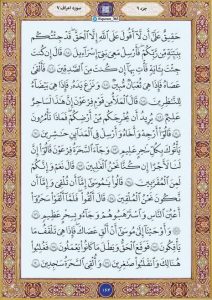 جزء ۹
سورة اعراف ۷
حَقِيقٌ عَلَىٰ أَن لَّا أَقُولَ عَلَى اللَّهِ إِلَّا الْحَقَّ قَدْ جِئْتُكُم
بِبَيِّنَةٍ مِّن رَّبِّكُمْ فَأَرْسِلْ مَعِيَ بَنِي إِسْرَائِيلَ ۝ قَالَ إِن كُنتَ
جِئْتَ بِآيَةٍ فَأْتِ بِهَا إِن كُنتَ مِنَ الصَّادِقِينَ ۝ فَأَلْقَىٰ
عَصَاهُ فَإِذَا هِيَ ثُعْبَانٌ مُّبِينٌ ۝ وَنَزَعَ يَدَهُ فَإِذَا هِيَ بَيْضَاءُ
لِلنَّاظِرِينَ ۝ قَالَ الْمَلَأُ مِن قَوْمِ فِرْعَوْنَ إِنَّ هَٰذَا لَسَاحِرٌ
عَلِيمٌ ۝ يُرِيدُ أَن يُخْرِجَكُم مِّنْ أَرْضِكُمْ فَمَاذَا تَأْمُرُونَ
۝ قَالُوا أَرْجِهْ وَأَخَاهُ وَأَرْسِلْ فِي الْمَدَائِنِ حَاشِرِينَ ۝
يَأْتُوكَ بِكُلِّ سَاحِرٍ عَلِيمٍ ۝ وَجَاءَ السَّحَرَةُ فِرْعَوْنَ قَالُوا إِنَّ
لَنَا لَأَجْرًا إِن كُنَّا نَحْنُ الْغَالِبِينَ ۝ قَالَ نَعَمْ وَإِنَّكُمْ
لَمِنَ الْمُقَرَّبِينَ ۝ قَالُوا يَا مُوسَىٰ إِمَّا أَن تُلْقِيَ وَإِمَّا أَن
نَّكُونَ نَحْنُ الْمُلْقِينَ ۝ قَالَ أَلْقُوا فَلَمَّا أَلْقَوْا سَحَرُوا
أَعْيُنَ النَّاسِ وَاسْتَرْهَبُوهُمْ وَجَاءُوا بِسِحْرٍ عَظِيمٍ ۝
۞ وَأَوْحَيْنَا إِلَىٰ مُوسَىٰ أَنْ أَلْقِ عَصَاكَ فَإِذَا هِيَ تَلْقَفُ مَا
يَأْفِكُونَ ۝ فَوَقَعَ الْحَقُّ وَبَطَلَ مَا كَانُوا يَعْمَلُونَ ۝ فَغُلِبُوا
هُنَالِكَ وَانقَلَبُوا صَاغِرِينَ ۝ وَأُلْقِيَ السَّحَرَةُ سَاجِدِينَ ۝
۱۶۴